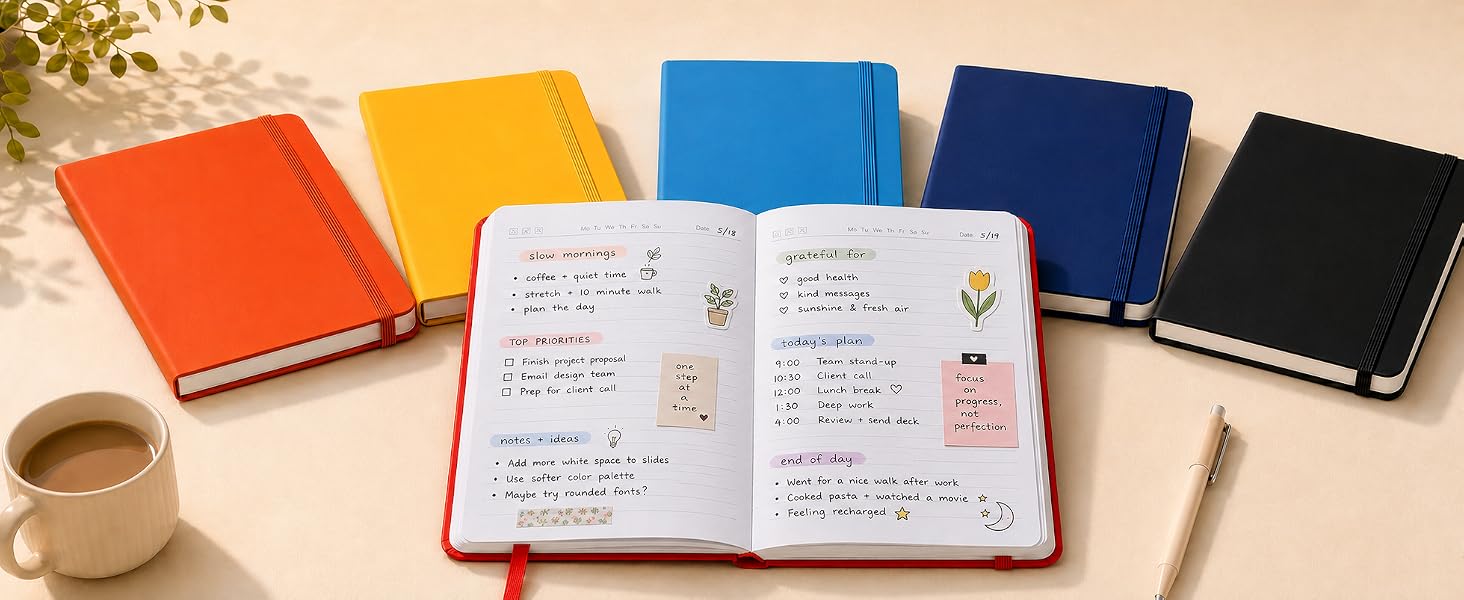 Mo Tu We Th Fr Sa Su Date: 5/18
slow mornings
• coffee + quiet time
• stretch + 10 minute walk
• plan the day
TOP PRIORITIES
☐ Finish project proposal
☐ Email design team
☐ Prep for client call
one
step
at
a
time
notes + ideas
• Add more white space to slides
• Use softer color palette
• Maybe try rounded fonts?
Mo Tu We Th Fr Sa Su Date: 5/19
grateful for
♡ good health
♡ kind messages
♡ sunshine & fresh air
today's plan
9:00 Team stand-up
10:30 Client call
12:00 Lunch break ♡
1:30 Deep work
4:00 Review + send deck
focus
on
progress,
not
perfection
end of day
• Went for a nice walk after work
• Cooked pasta + watched a movie
• Feeling recharged